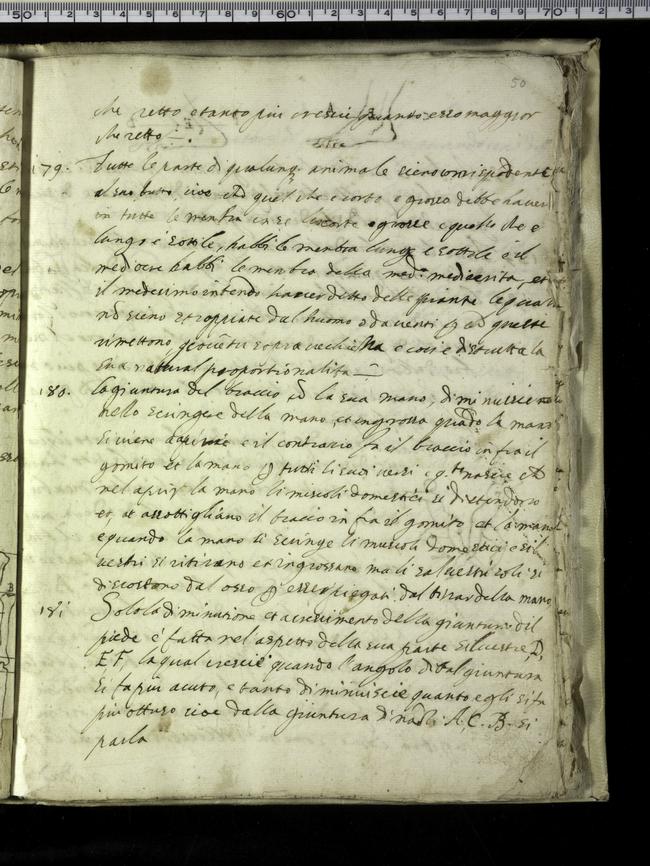 50
che retto e tanto piu cresce quando e so maggior
che retto
179. Tutte le parte di qualunq. animale sieno corrispodente
al suo tutto, cioe che quel che e corto e grosso debbe haver
in tutte le menbra in se corte e grosse e quello che e
lungo e sottile, habbi le menbra lunge e sottile e il
mediocre habbi le menbra della med.ma mediocrita, et
il medesimo intendo haver detto delle piante le quali
nō sieno stropiate dal huomo o da venti
rimettono gioventu sopra vechiezza e cosi e distrutta la
sua natural proportionalita
180. La giuntura del braccio cō la sua mano, diminuisce
nello stringere della mano, et ingrossa quādo la mano
si viene aprire e il contrario fa il braccio infra il
gomito et la mano p tutti li suoi versi e q.to nascie che
nel aprir la mano li muscoli domestici si distendono
et assottigliano il braccio infra il gomito et la mano
e quando la mano si stringe li muscoli domestici e sil
vestri si ritirano et ingrossano ma li salvestri soli si
discostano dal osso p esser piegati dal tirar della mano
181 Solo la diminutione et accrescimento della giuntura dil
piede e fatta nel aspetto della sua parte silvestre D,
E F, la qual crescie quando l'angolo di tal giuntura
si fa piu acuto, e tanto diminuiscie quanto egli si fa
piu ottuso cioe dalla giuntura dināzi A. C. B. si
parla